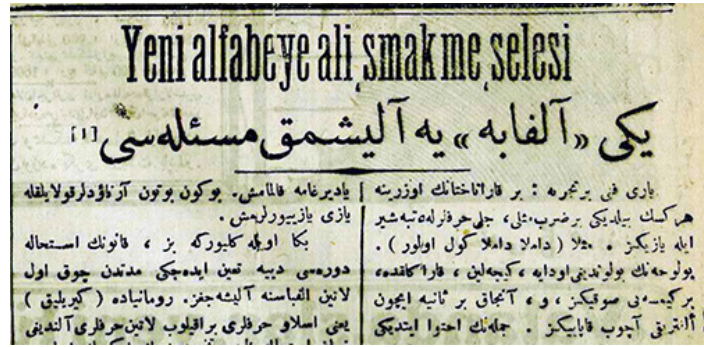 Yeni alfabeye ali,smak me,selesi
یکی «آلفابه» یه آلیشمق مسئله‌سی [1]
یاری فنی بر تجربه : بر قارا تاختانك اوزرینه
هرکسك بیلدیکی بر ضرب مثلی، جلی حرفلرله تبه‌شیر
ایله یازیکز . مثلا ( داملا داملا کول اولور ) .
بو لوحه‌نك بولوندیغی اودایه ، کیجه‌لین ، قارا کلقده،
بر کیمسه‌یی صوقیکز ، و ، آنجاق بر ثانیه ایچون
ألکتریغی آچوب قاپاییکز . جمله‌نك احتوا ایتدیکی
یادیرغامه قالمامش. بوکون بوتون آرناؤدلر قولایلقله
یازی یازییورلرمش .
بکا اویله کلیورکه بز ، قانونك استحاله
دوره‌سی دییه تعیین ایده‌جکی مدتدن چوق اول
لاتین الفباسنه آلیشه‌جغز. رومانیاده ( کیریلیق )
یعنی اسلاو حرفلری براقیلوب لاتین حرفلری آلندیغی